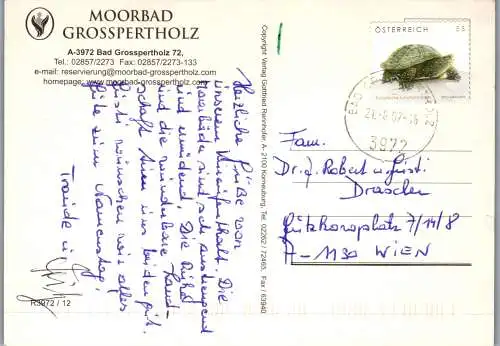 MOORBAD
GROSSPERTHOLZ
A-3972 Bad Grosspertholz 72,
Tel.: 02857/2273 Fax: 02857/2273-133
e-mail: reservierung@moorbad-grosspertholz.com
homepage: www.moorbad-grosspertholz.com
Herzliche Grüße von
unserem Kuraufenthalt. Die
Moorbäder sind sehr anstrengend
und ermüdend. Die Ruhe
und die wunderbare Land-
schaft tun uns beiden gut.
Gusti wünschen wir alles
Gute zum Namenstag!
Traude u.
R3972 / 12
Copyright Verlag Gottfried Rennhofer, A-2100 Korneuburg, Tel. 02262 / 72465, Fax 63940
ÖSTERREICH
55
3972
Fam.
Dr. Robert u. Gusti
Drascher
Lützkowplatz 7/14/8
A-1130 WIEN